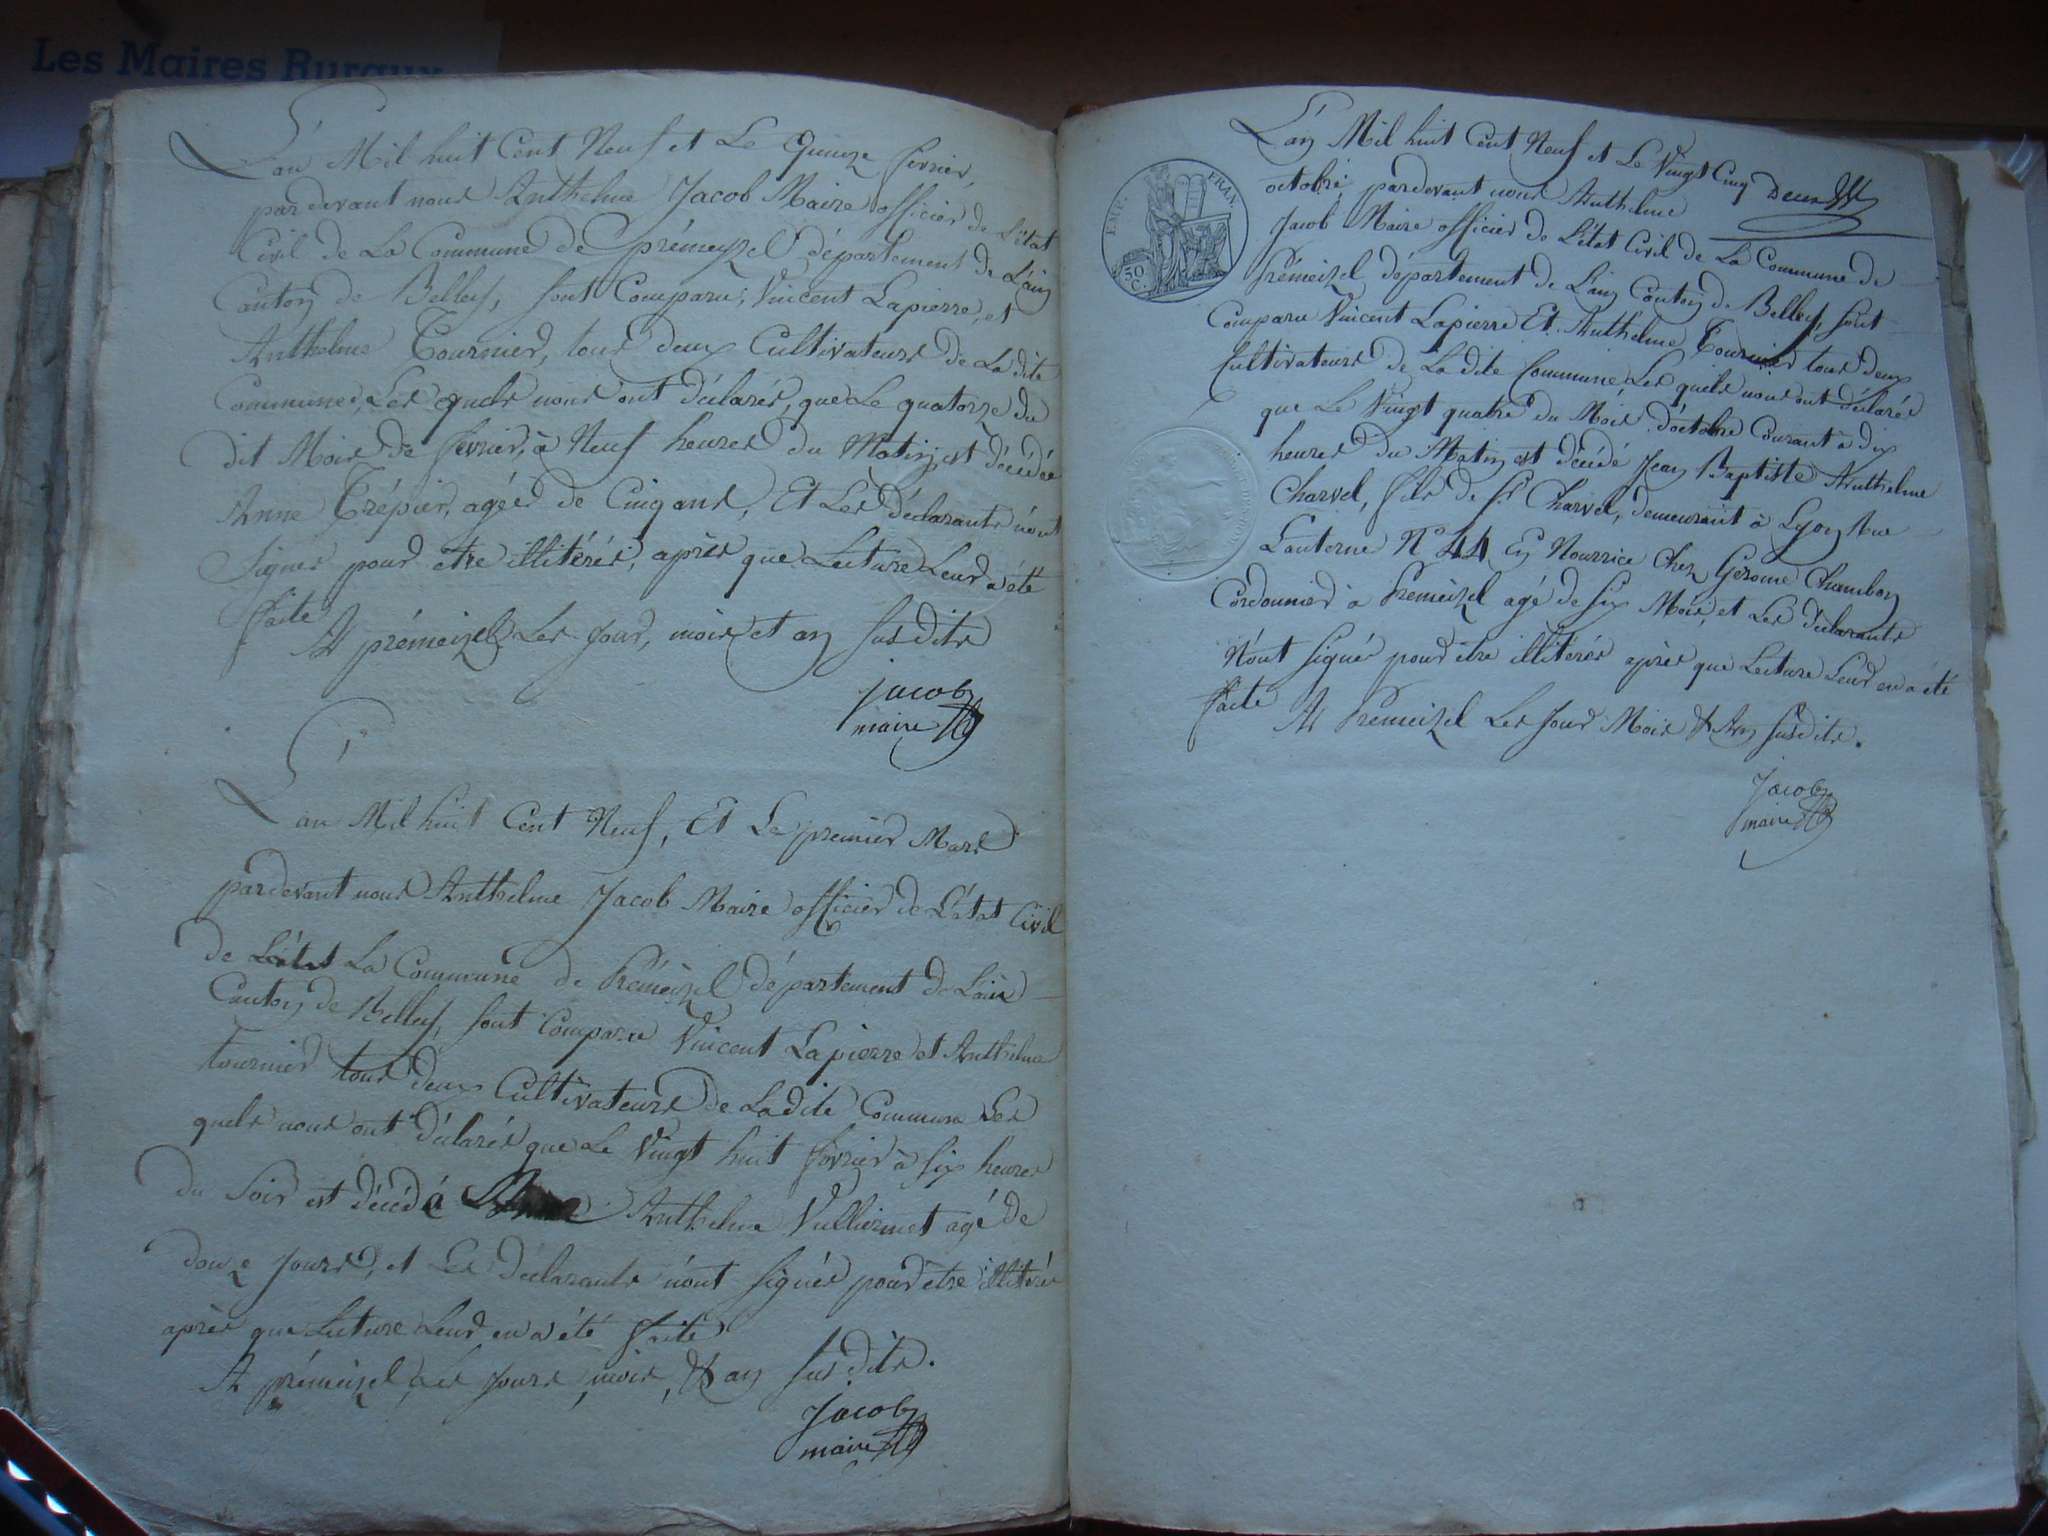 Les Maires Ruraux
L'an Mil huit Cent Neuf et Le Quinze fevrier,
pardevant nous Anthelme Jacob Maire officier de L'état
Civil de La Commune de Prémeyzel département de L'ain
Canton de Belley, sont Comparu, Vincent Lapierre, et
Anthelme Tournier, tous deux Cultivateurs de Ladite
Commune, Les quels nous ont déclarés, que Le quatorze du
dit Mois de fevrier, à Neuf heures du Matin, est décédée
Anne Trépier, agée de Cinq ans, Et Les déclarants n'ont
Signés pour être illitérés, après que Lecture Leur a été
faite
A prémeizel Les Jour, mois et an susdits
Jacob
maire
L'an Mil huit Cent Neuf, Et Le premier Mars
pardevant nous Anthelme Jacob Maire officier de L'état Civil
de L'état La Commune de Prémeizel département de L'ain
Canton de Belley, sont Comparu Vincent Lapierre et Anthelme
tournier tous deux Cultivateurs de Ladite Commune Les
quels nous ont déclarés que Le Vingt huit fevrier à six heures
du Soir est décédé Anthelme Vulliermet agé de
douze Jours, et Les déclarants n'ont signés pour être illitérés
après que Lecture Leur en a été faite
A prémeizel, Les Jours, mois, & an susdits.
Jacob
maire
L'an Mil huit Cent Neuf et Le Vingt Cinq
octobre pardevant nous Anthelme
Jacob Maire officier de L'état Civil de La Commune de
Prémeizel département de L'ain Canton de Belley, sont
Comparu Vincent Lapierre Et Anthelme Tournier tous deux
Cultivateurs de Ladite Commune, Les quels nous ont déclarés
que Le Vingt quatre du Mois d'octobre Courant à dix
heures du Matin est décédé Jean Baptiste Anthelme
Charvel, fils de Sr Charvel, demeurant à Lyon Rue
Lanterne N° 44 En Nourrice Chez Gerome Chambon
Cordonnier à Premeizel agé de six Mois, et Les déclarants
N'ont signés pour être illitérés après que Lecture Leur en a été
faite
A Premeizel Les Jour Mois & An susdits.
Jacob
maire
EMP. FRAN.
50
C.